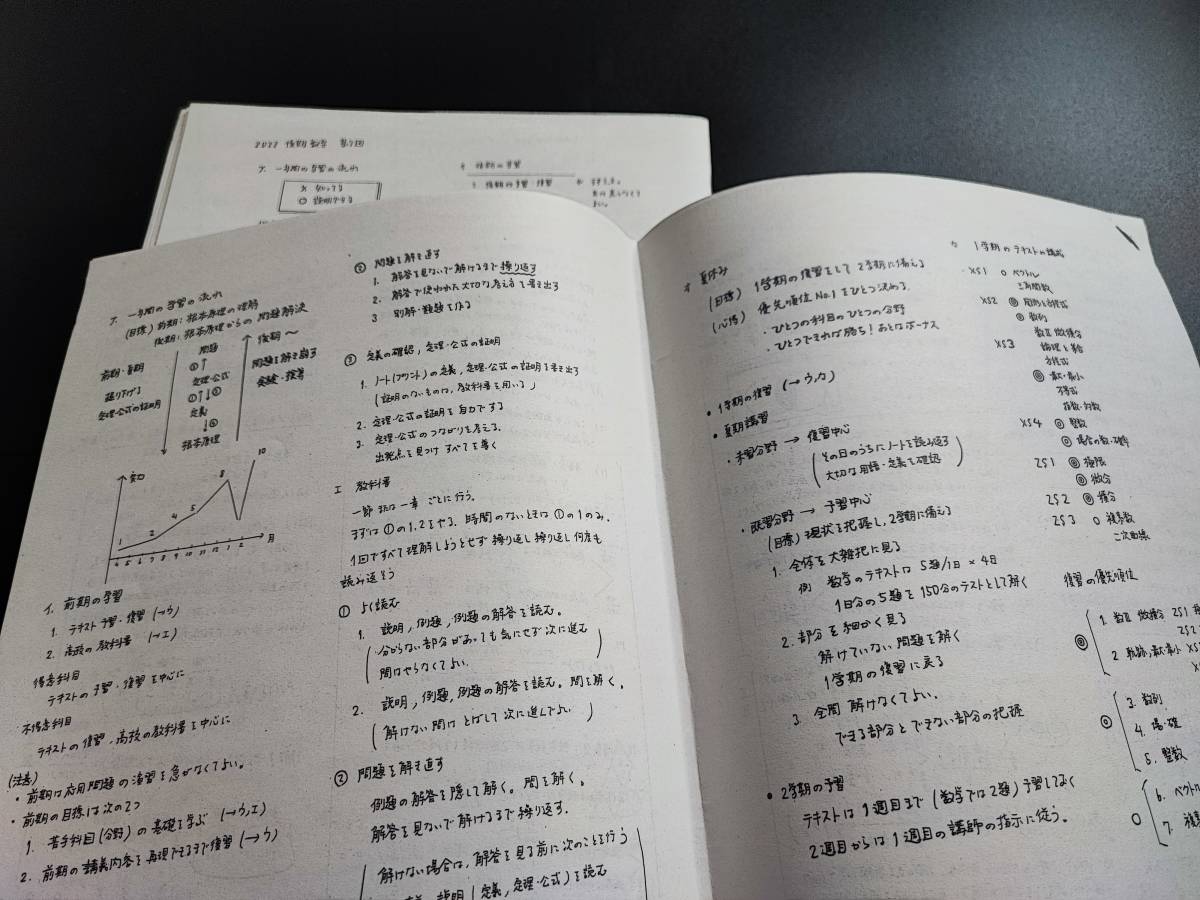 2022 後期数学 第1回
ア. 一年間の学習の流れ
① 説明できる
オ 後期の学習
1. 後期の予習・復習
ア. 一年間の学習の流れ
(目標) 前期: 根本原理の理解
後期: 根本原理からの問題解決
前期・夏期
掘り下げる
定理・公式の証明
問題
定理・公式
定義
根本原理
後期〜
問題を解き崩す
4 5 6 7 8 9 10 11 12 1 2 月
1 2 4 5 8 10
イ. 前期の学習
1. テキスト予習・復習 (→ウ)
2. 高校の教科書 (→エ)
得意科目
テキストの予習・復習を中心に
不得意科目
テキストの復習、高校の教科書を中心に
(注意)
・前期は応用問題の演習を急がなくてよい。
・前期の目標は次の2つ
1. 苦手科目(分野)の基礎を学ぶ (→ウ,エ)
2. 前期の講義内容を再現できるまで復習 (→ウ)
② 問題を解き直す
1. 解答を見ないで解けるまで繰り返す
2. 解答で使われた大切な考えを書き出す
3 別解・類題を作る
③ 定義の確認, 定理・公式の証明
1. ノート(プリント)の定義, 定理・公式の証明を書き出す
(証明のないものは, 教科書を用いる)
2. 定理・公式の証明を自力でする
3. 定理・公式のつながりを考える.
出発点を見つけすべてを導く
エ 教科書
一節 又は 一章 ごとに行う。
まずは①の1,2をやる. 時間のないときは①の1のみ.
1回ですべて理解しようとせず繰り返し繰り返し何度も
読み返そう
① よく読む
1. 説明, 例題, 例題の解答を読む。
(分からない部分があっても気にせず次に進む
問はやらなくてよい.)
2. 説明, 例題, 例題の解答を読む. 問を解く.
(解けない問はとばして次に進んでよい)
② 問題を解き直す
例題の解答を隠して解く。問を解く。
解答を見ないで解けるまで繰り返す.
解けない場合は, 解答を見る前に次のことを行う
説明(定義, 定理・公式)を読む
オ 夏休み
(目標) 1学期の復習をして2学期に備える
(心得) 優先順位No.1をひとつ決める.
・ひとつの科目のひとつの分野
・ひとつできれば勝ち!あとはボーナス
・1学期の復習 (→ウ,カ)
・夏期講習
・未習分野 → 復習中心
(その日のうちにノートを読み返す
大切な用語・定義を確認)
・既習分野 → 予習中心
(目標) 現状を把握し, 2学期に備える
1. 全体を大雑把に見る
例 数学のテキストは 5題/1日 × 4日
1日分の5題を150分のテストとして解く
2. 部分を細かく見る
解けていない問題を解く
1学期の復習に戻る
3 全問解けなくてよい.
できる部分とできない部分の把握
・2学期の予習
テキストは1週目まで(数学では2題)予習しておく
2週目からは1週目の講師の指示に従う。
カ 1学期のテキストの構成
XS1 ○ ベクトル
三角関数
XS2 ◎ 図形と方程式
◎ 数列
数Ⅱ微積分
XS3 論理と集合
方程式
◎ 最大・最小
不等式
指数・対数
XS4 ◎ 整数
◎ 場合の数・確率
ZS1 ◎ 極限
◎ 微分
ZS2 ◎ 積分
ZS3 ○ 複素数
二次曲線
復習の優先順位
◎ 1. 数Ⅱ 微積分 ZS1
ZS2
2 軌跡, 最大・最小 XS2
◎ 3. 数列
4. 場・確
5. 整数
○ 6. ベクトル
7.